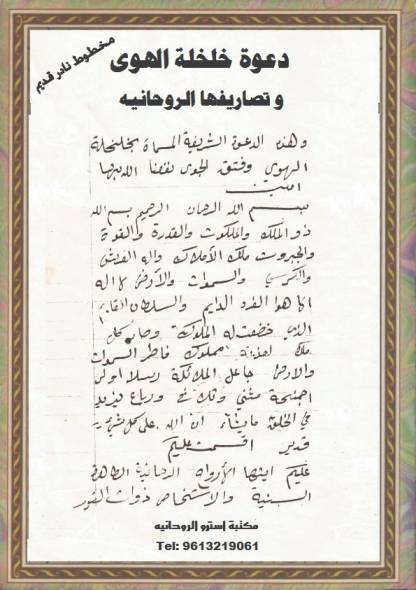 مخطوط نادر قديم
دعوة خلخلة الهوى
و تصاريفها الروحانيه
وهذه الدعوة الشريفة المسماة بخلخلة
الهوى وفتق الجوى نفعنا الله بها
امين
بسم الله الرحمان الرحيم بسم الله
ذو الملك والملكوت والقدرة والقوة
والجبروت ملك الأملاك واله العرش
والكرسي والسموات والأرض لا اله
الا هو الفرد الدايم والسلطان القايم
الذي خضعت له الملوك وصار كل
ملك لعزته مملوك فاطر السموات
والارض جاعل الملائكة رسلا اولى
اجنحة مثنى وثلاث ورباع يزيد
في الخلق ما يشاء ان الله على كل شيء
قدير اقسمت عليكم
عليكم ايتها الأرواح الرحانية الطاهرة
السنية والاشخاص ذوات النور
مكتبة إسترو الروحانيه
Tel: 9613219061